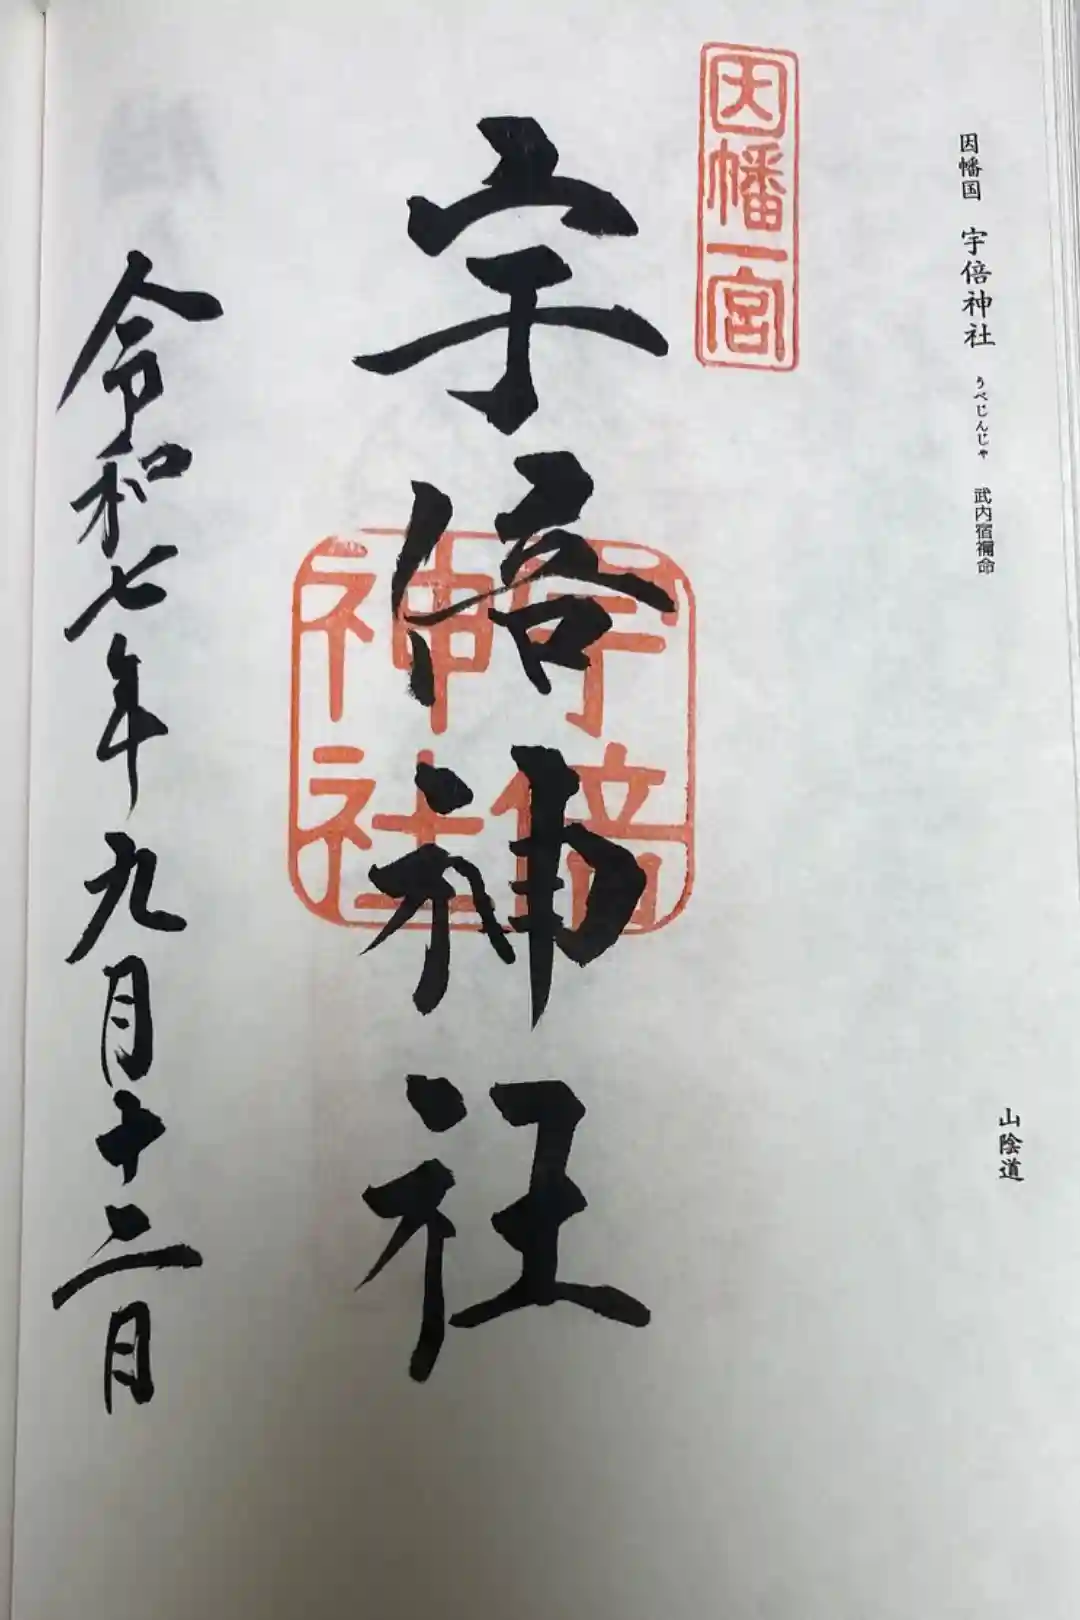 因幡国 宇倍神社 うべじんじゃ 武内宿禰命
山陰道
因幡一宮
宇倍神社
宇倍
神社
令和七年九月十二日